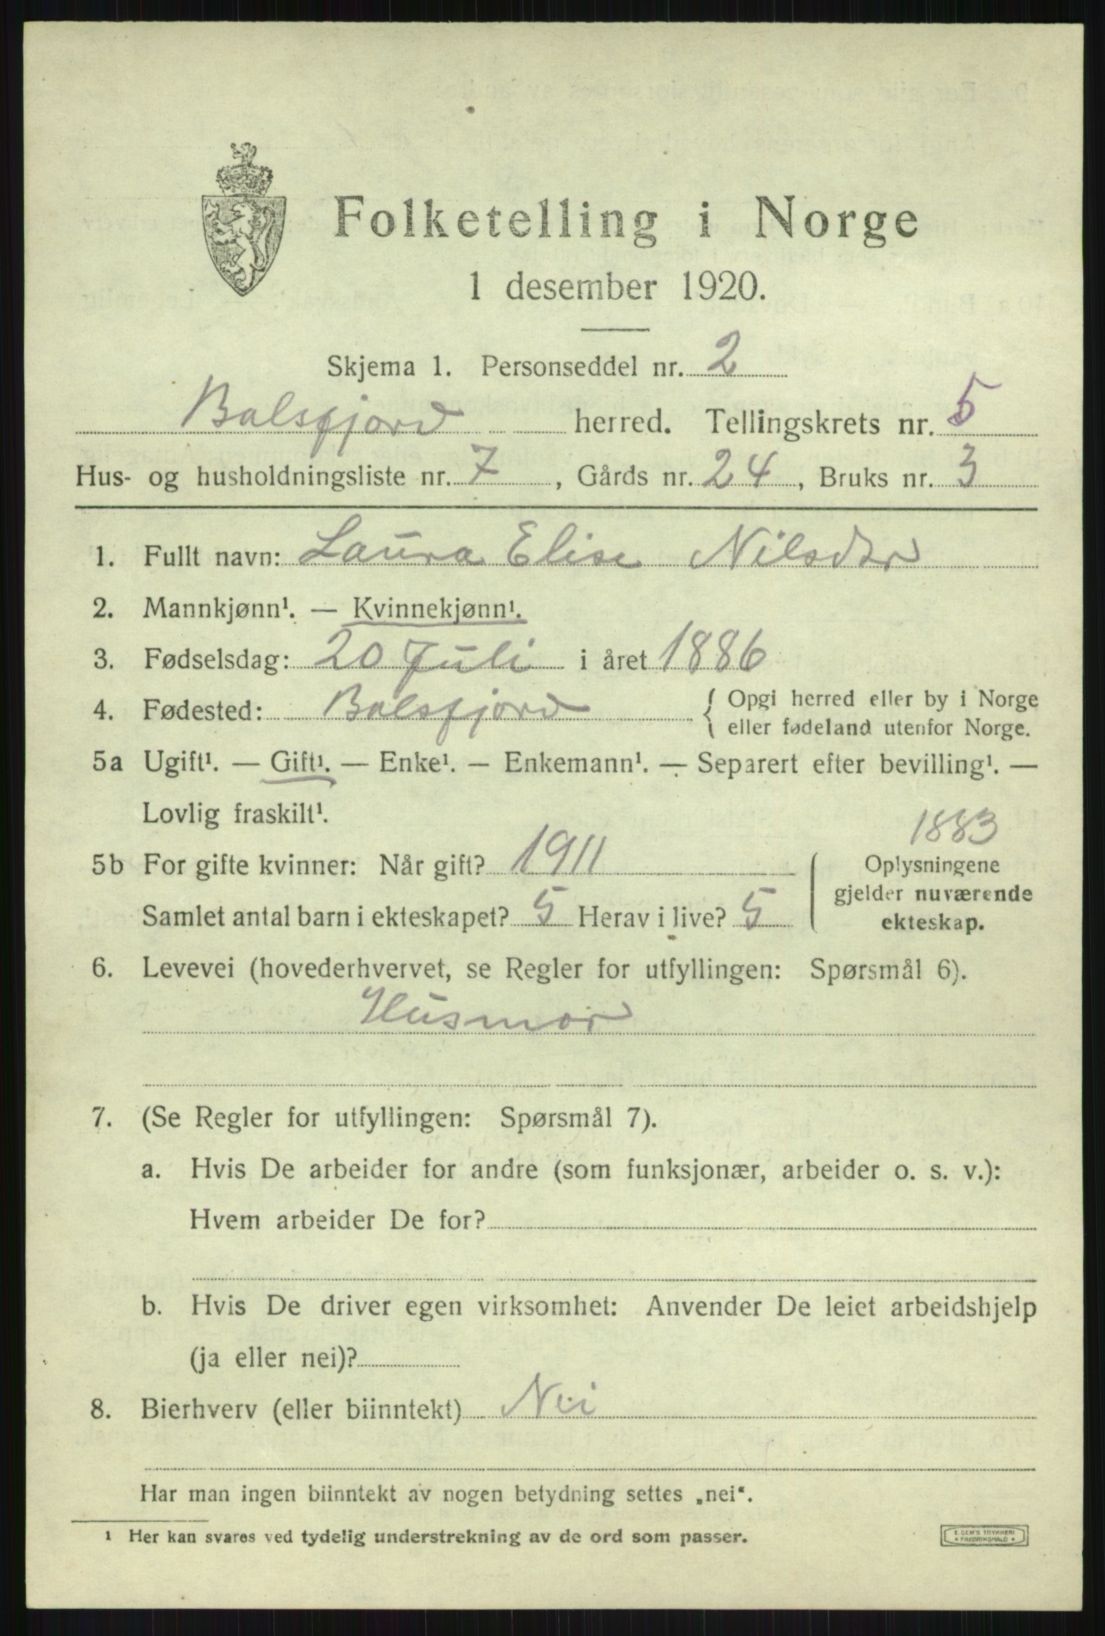 Folketelling i Norge
1 desember 1920.
Skjema 1. Personseddel nr. 2
Balsfjord herred. Tellingskrets nr. 5
Hus- og husholdningsliste nr. 7, Gårds nr. 24, Bruks nr. 3
1. Fullt navn: Laura Elise
2. Mannkjønn¹. — Kvinnekjønn¹.
3. Fødselsdag: 20 Juli i året 1886
4. Fødested: Balsfjord { Opgi herred eller by i Norge
eller fødeland utenfor Norge.
5a Ugift¹. — Gift¹. — Enke¹. — Enkemann¹. — Separert efter bevilling¹. —
Lovlig fraskilt¹.
1883
5b For gifte kvinner: Når gift? 1911
Samlet antal barn i ekteskapet? 5 Herav i live? 5
Oplysningene
gjelder nuværende
ekteskap.
6. Levevei (hovederhvervet, se Regler for utfyllingen: Spørsmål 6).
Husmor
7. (Se Regler for utfyllingen: Spørsmål 7).
a. Hvis De arbeider for andre (som funksjonær, arbeider o. s. v.):
Hvem arbeider De for?
b. Hvis De driver egen virksomhet: Anvender De leiet arbeidshjelp
(ja eller nei)?
8. Bierhverv (eller biinntekt) Nei
Har man ingen biinntekt av nogen betydning settes „nei“.
¹ Her kan svares ved tydelig understrekning av de ord som passer.